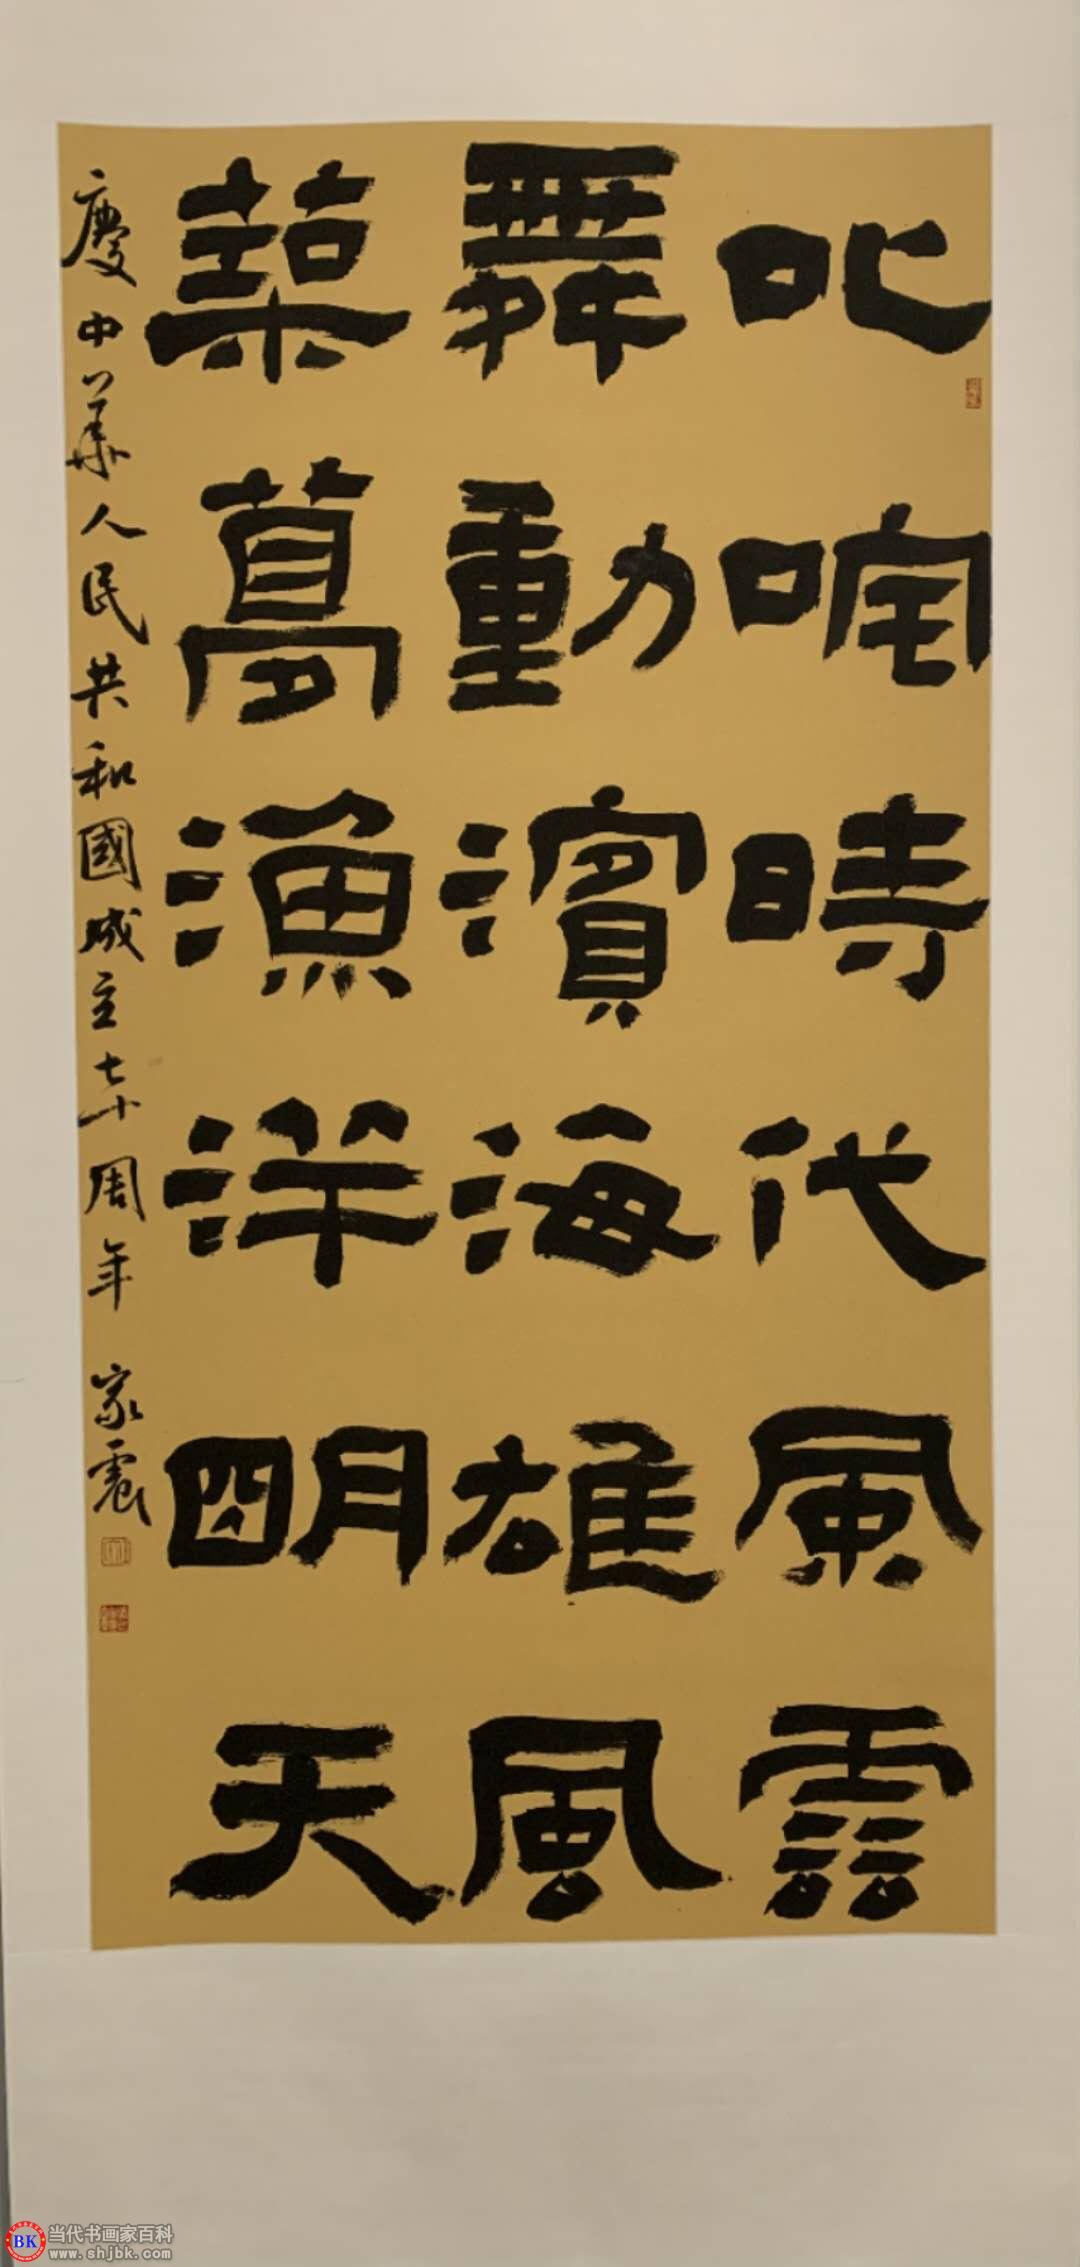 叱咤時代風雲
舞動濱海雄風
築夢漁洋明天
慶中華人民共和國成立七十周年 家震
BK 当代书画家百科
www.shjbk.com